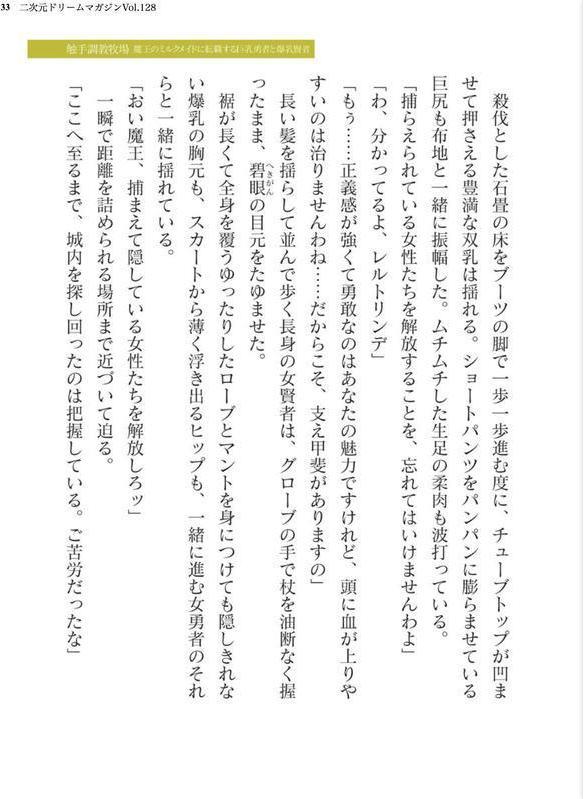 33　二次元ドリームマガジンVol.128
触手調教牧場 魔王のミルクメイドに転職する巨乳勇者と爆乳賢者
殺伐とした石畳の床をブーツの脚で一歩一歩進む度に、チューブトップが凹ま
せて押さえる豊満な双乳は揺れる。ショートパンツをパンパンに膨らませている
巨尻も布地と一緒に振幅した。ムチムチした生足の柔肉も波打っている。
「捕らえられている女性たちを解放することを、忘れてはいけませんわよ」
「わ、分かってるよ、レルトリンデ」
「もぅ……正義感が強くて勇敢なのはあなたの魅力ですけれど、頭に血が上りや
すいのは治りませんわね……だからこそ、支え甲斐がありますの」
長い髪を揺らして並んで歩く長身の女賢者は、グローブの手で杖を油断なく握
ったまま、碧眼の目元をたゆませた。
へきがん
裾が長くて全身を覆うゆったりしたローブとマントを身につけても隠しきれな
い爆乳の胸元も、スカートから薄く浮き出るヒップも、一緒に進む女勇者のそれ
らと一緒に揺れている。
「おい魔王、捕まえて隠している女性たちを解放しろッ」
一瞬で距離を詰められる場所まで近づいて迫る。
「ここへ至るまで、城内を探し回ったのは把握している。ご苦労だったな」